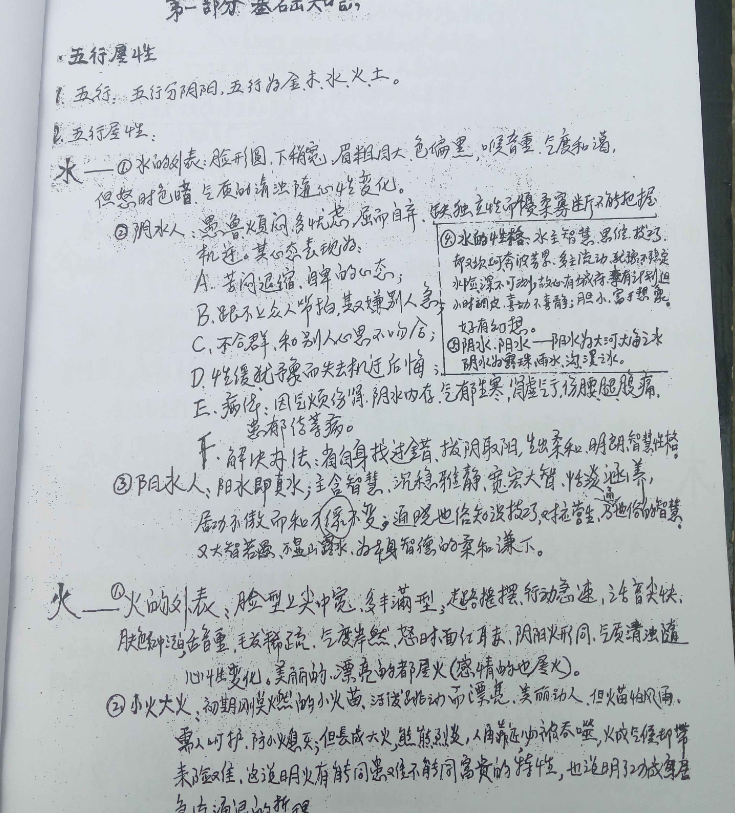 第一部分 基础知识
·五行属性
1. 五行：五行分阴阳，五行为金、木、水、火、土。
2. 五行属性：
水——①水的外表：脸形圆、下稍宽、眉粗目大、色偏黑，喉音重、气度和蔼，
但怒时色暗，气质的清浊随心性变化。
②阴水人：愚鲁烦闷、多忧虑、屈而自弃、缺独立性而优柔寡断不能把握
机遇。其心态表现为：
A. 苦闷退缩、自卑的心态；
B. 跟不上众人节拍，其又嫌别人急；
C. 不合群，和别人心思不吻合；
D. 性缓犹予豫而失去机遇后悔；
E. 病法：因气烦伤肾、阴水内存、气郁生寒，肾虚亏，伤腰腿腹痛，
患郁结等病。
F. 解决办法：省自身找过错，拔阴取阳，生出柔和、明朗、智慧性格。
④水的性格：水主智慧、思维、技巧，
小时调皮、喜动不喜静；胆小、富于想象。
好有幻想。
⑤阴水、阳水——阳水为大河大海之水
阴水为露珠、雨水、沟溪之水。
③阳水人：阳水即真水；主含智慧、沉稳雅静、宽宏大智、恬淡涵养，
居功不傲而和不变；通晓他俗知识技巧，
又大智若愚，不显山露水，为本身智德的柔和谦下。
火——①火的外表：脸型上尖中宽、多丰满型；走路摇摆、行动急速，语音尖快，
舌音重，毛发稀疏、气度岸然，怒时面红耳赤，阴阳火形同，气质清浊随
心性变化。美丽的、漂亮的都属火（感情的也属火）。
②小火大火：初期刚燃的小火苗，活泼跳动而漂亮、美丽动人，但火苗怕风雨，
需人呵护，防小火熄灭；但長成大火，熊熊烈炎，人再靠近必被吞噬，火成气候却带
来险难，这说明火有能同患难不能同富贵的特性，也说明了功成
急流涌退的哲理